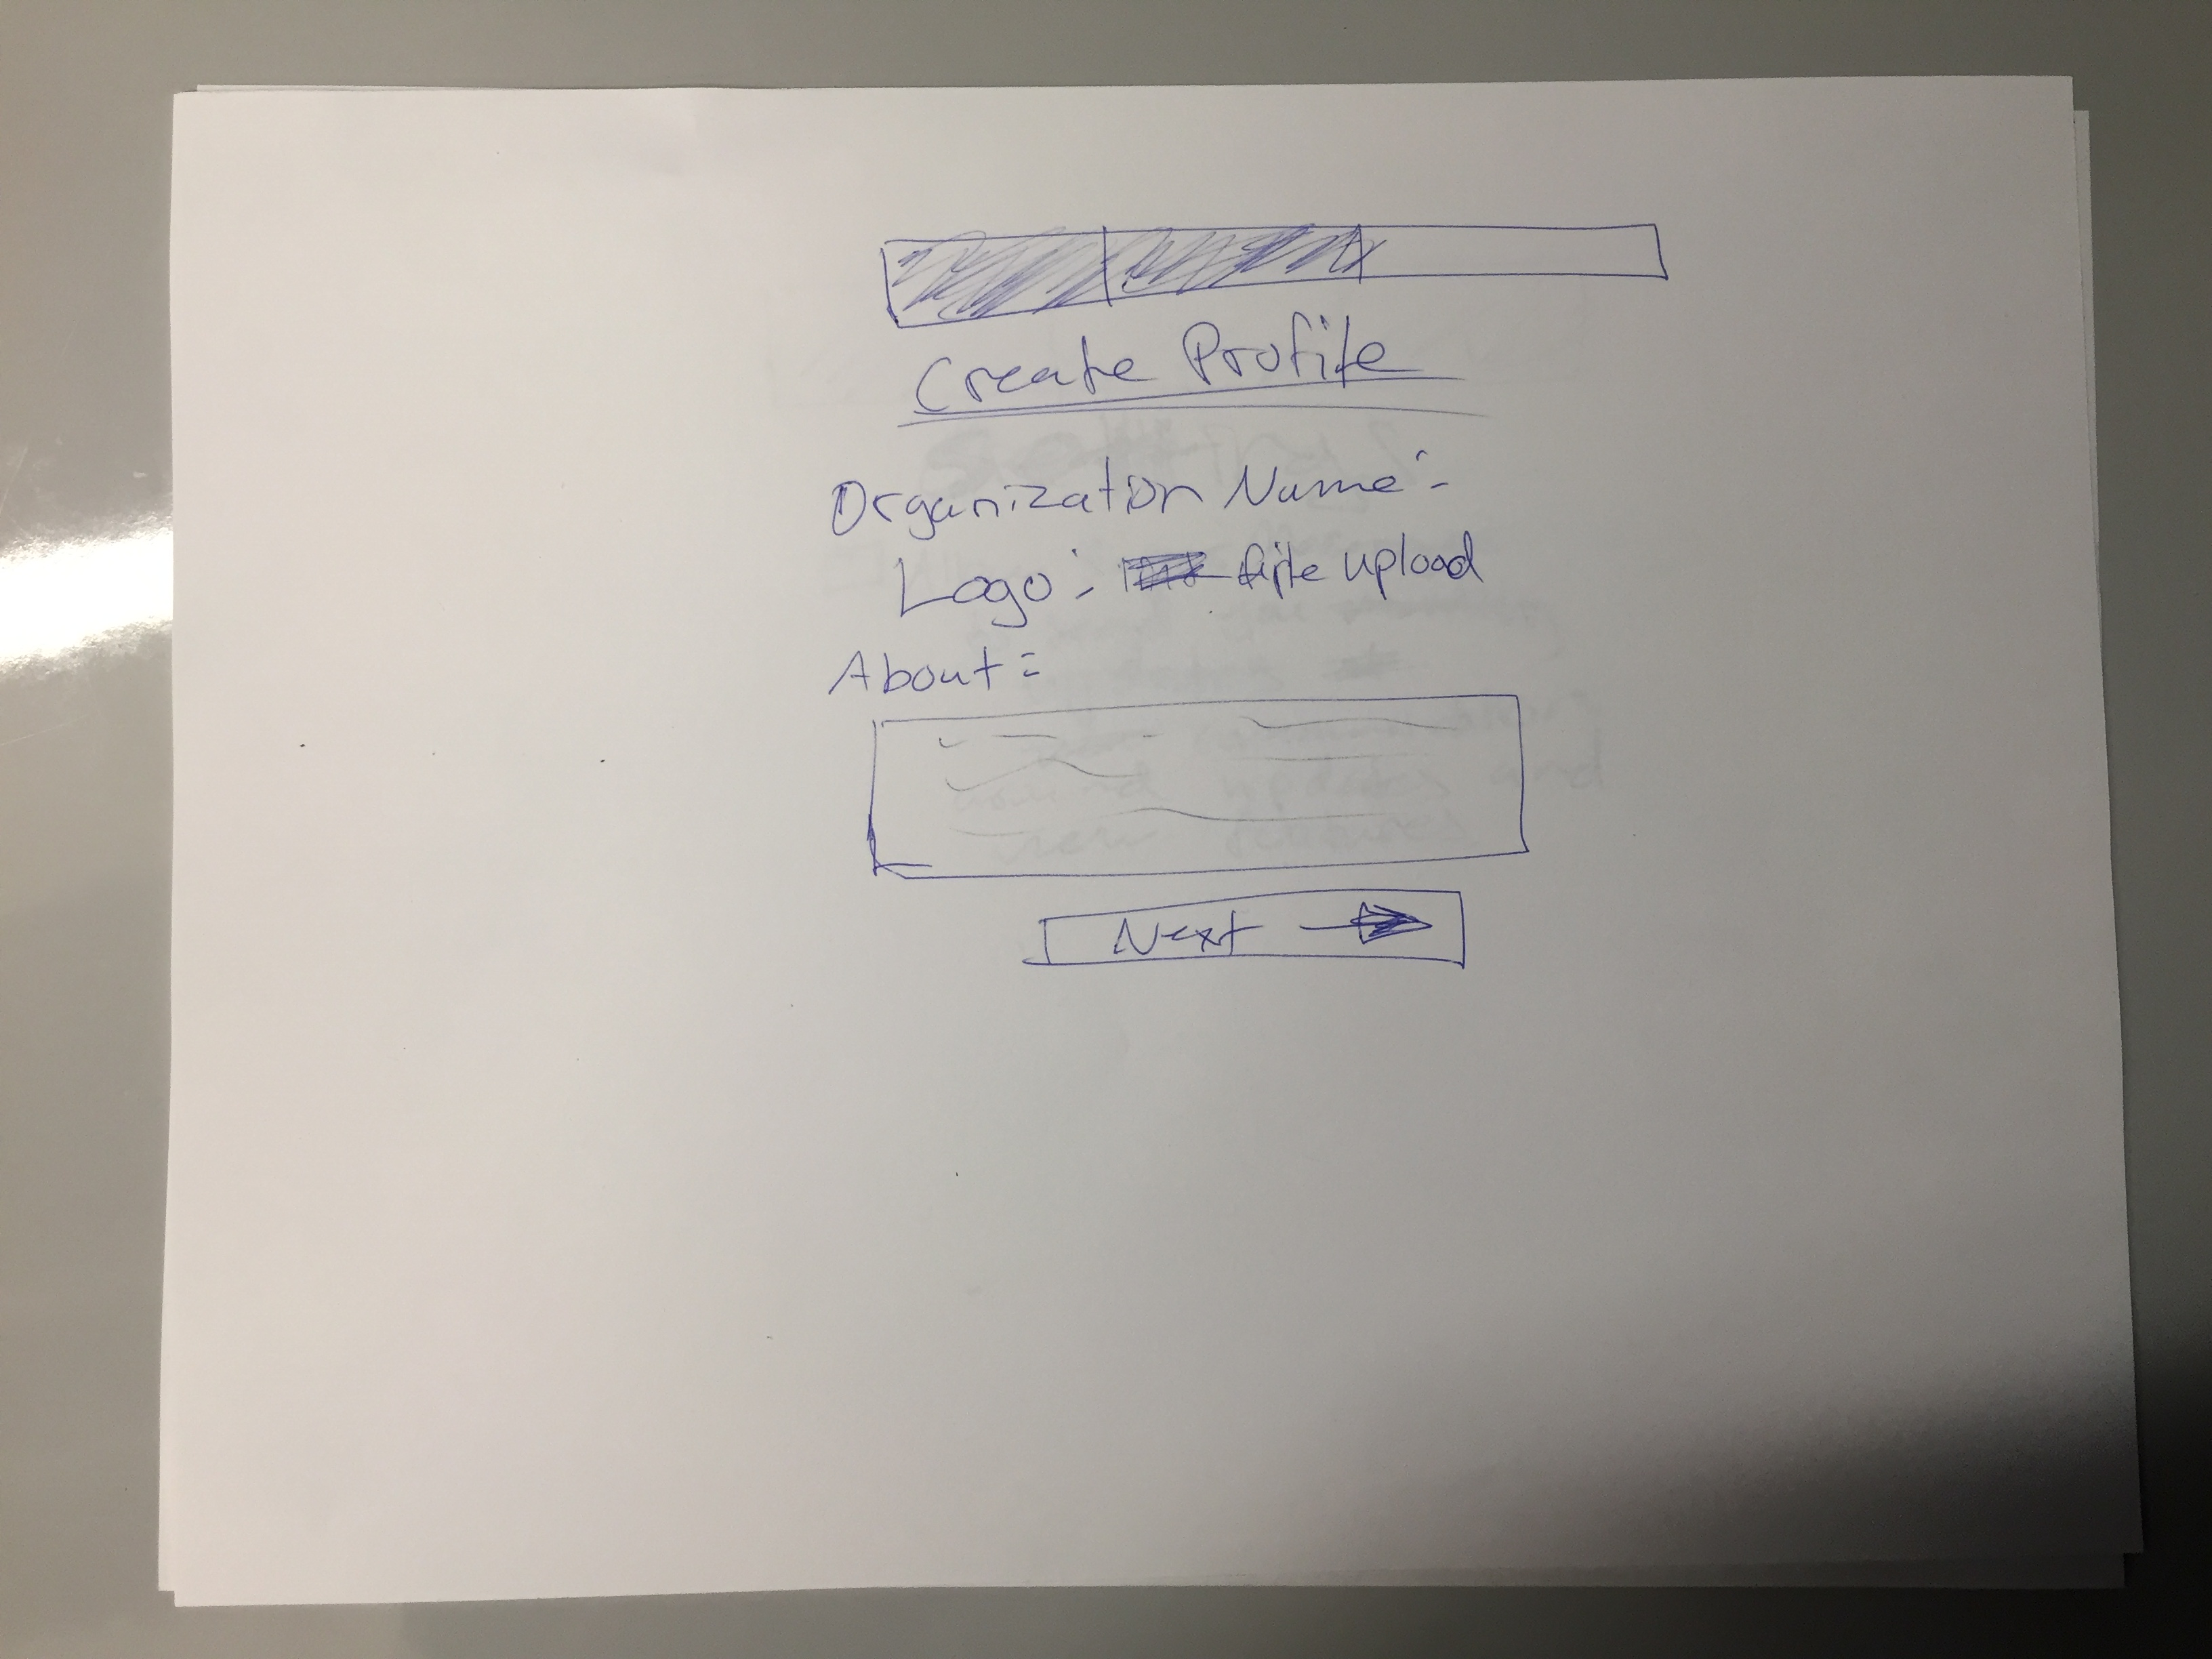 Create Profile
Organization Name:-
Logo:- file upload
About:
Next →